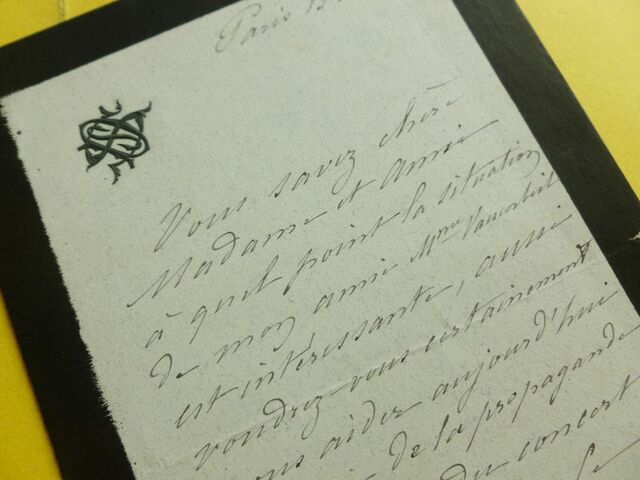 Paris 15
Vous savez chère
Madame et Amie
à quel point la situation
de mon amie Mme
est intéressante, aussi
voudrez-vous certainement
aider aujourd'hui
de la propagande
du concert